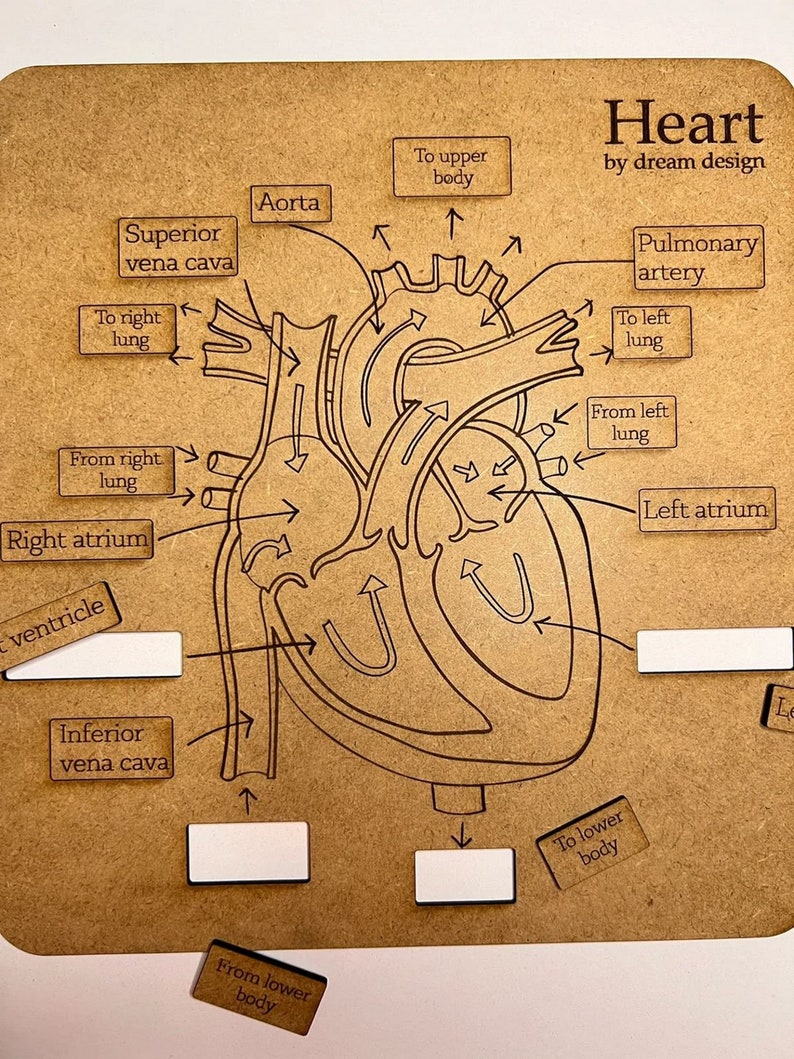 Heart
by dream design
To upper
body
Aorta
Superior
vena cava
Pulmonary
artery
To right
lung
To left
lung
From left
lung
From right
lung
Left atrium
Right atrium
ventricle
Inferior
vena cava
To lower
body
From lower
body